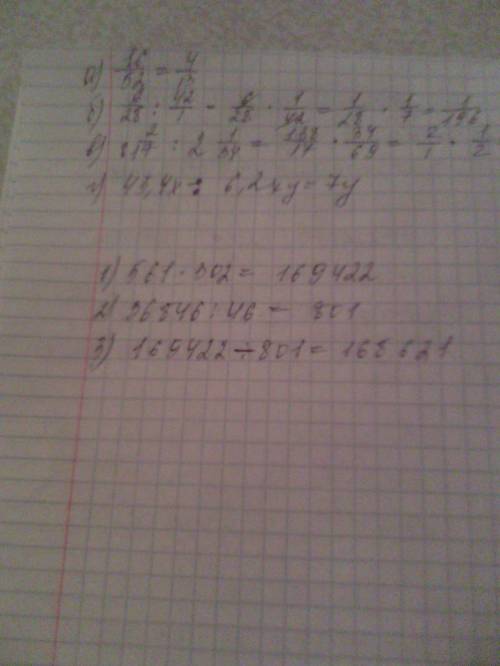 б) 6/28 : 42/1 = 6/28 · 1/42 = 1/28 · 1/7 = 1/196
в) 8 2/17 : 2 1/34 = 138/17 · 34/69 = 2/1 · 1/2
г) 43,4x : 6,2xy = 7y
1) 561 · 302 = 169422
2) 36846 : 46 = 801
3) 169422 - 801 = 168621